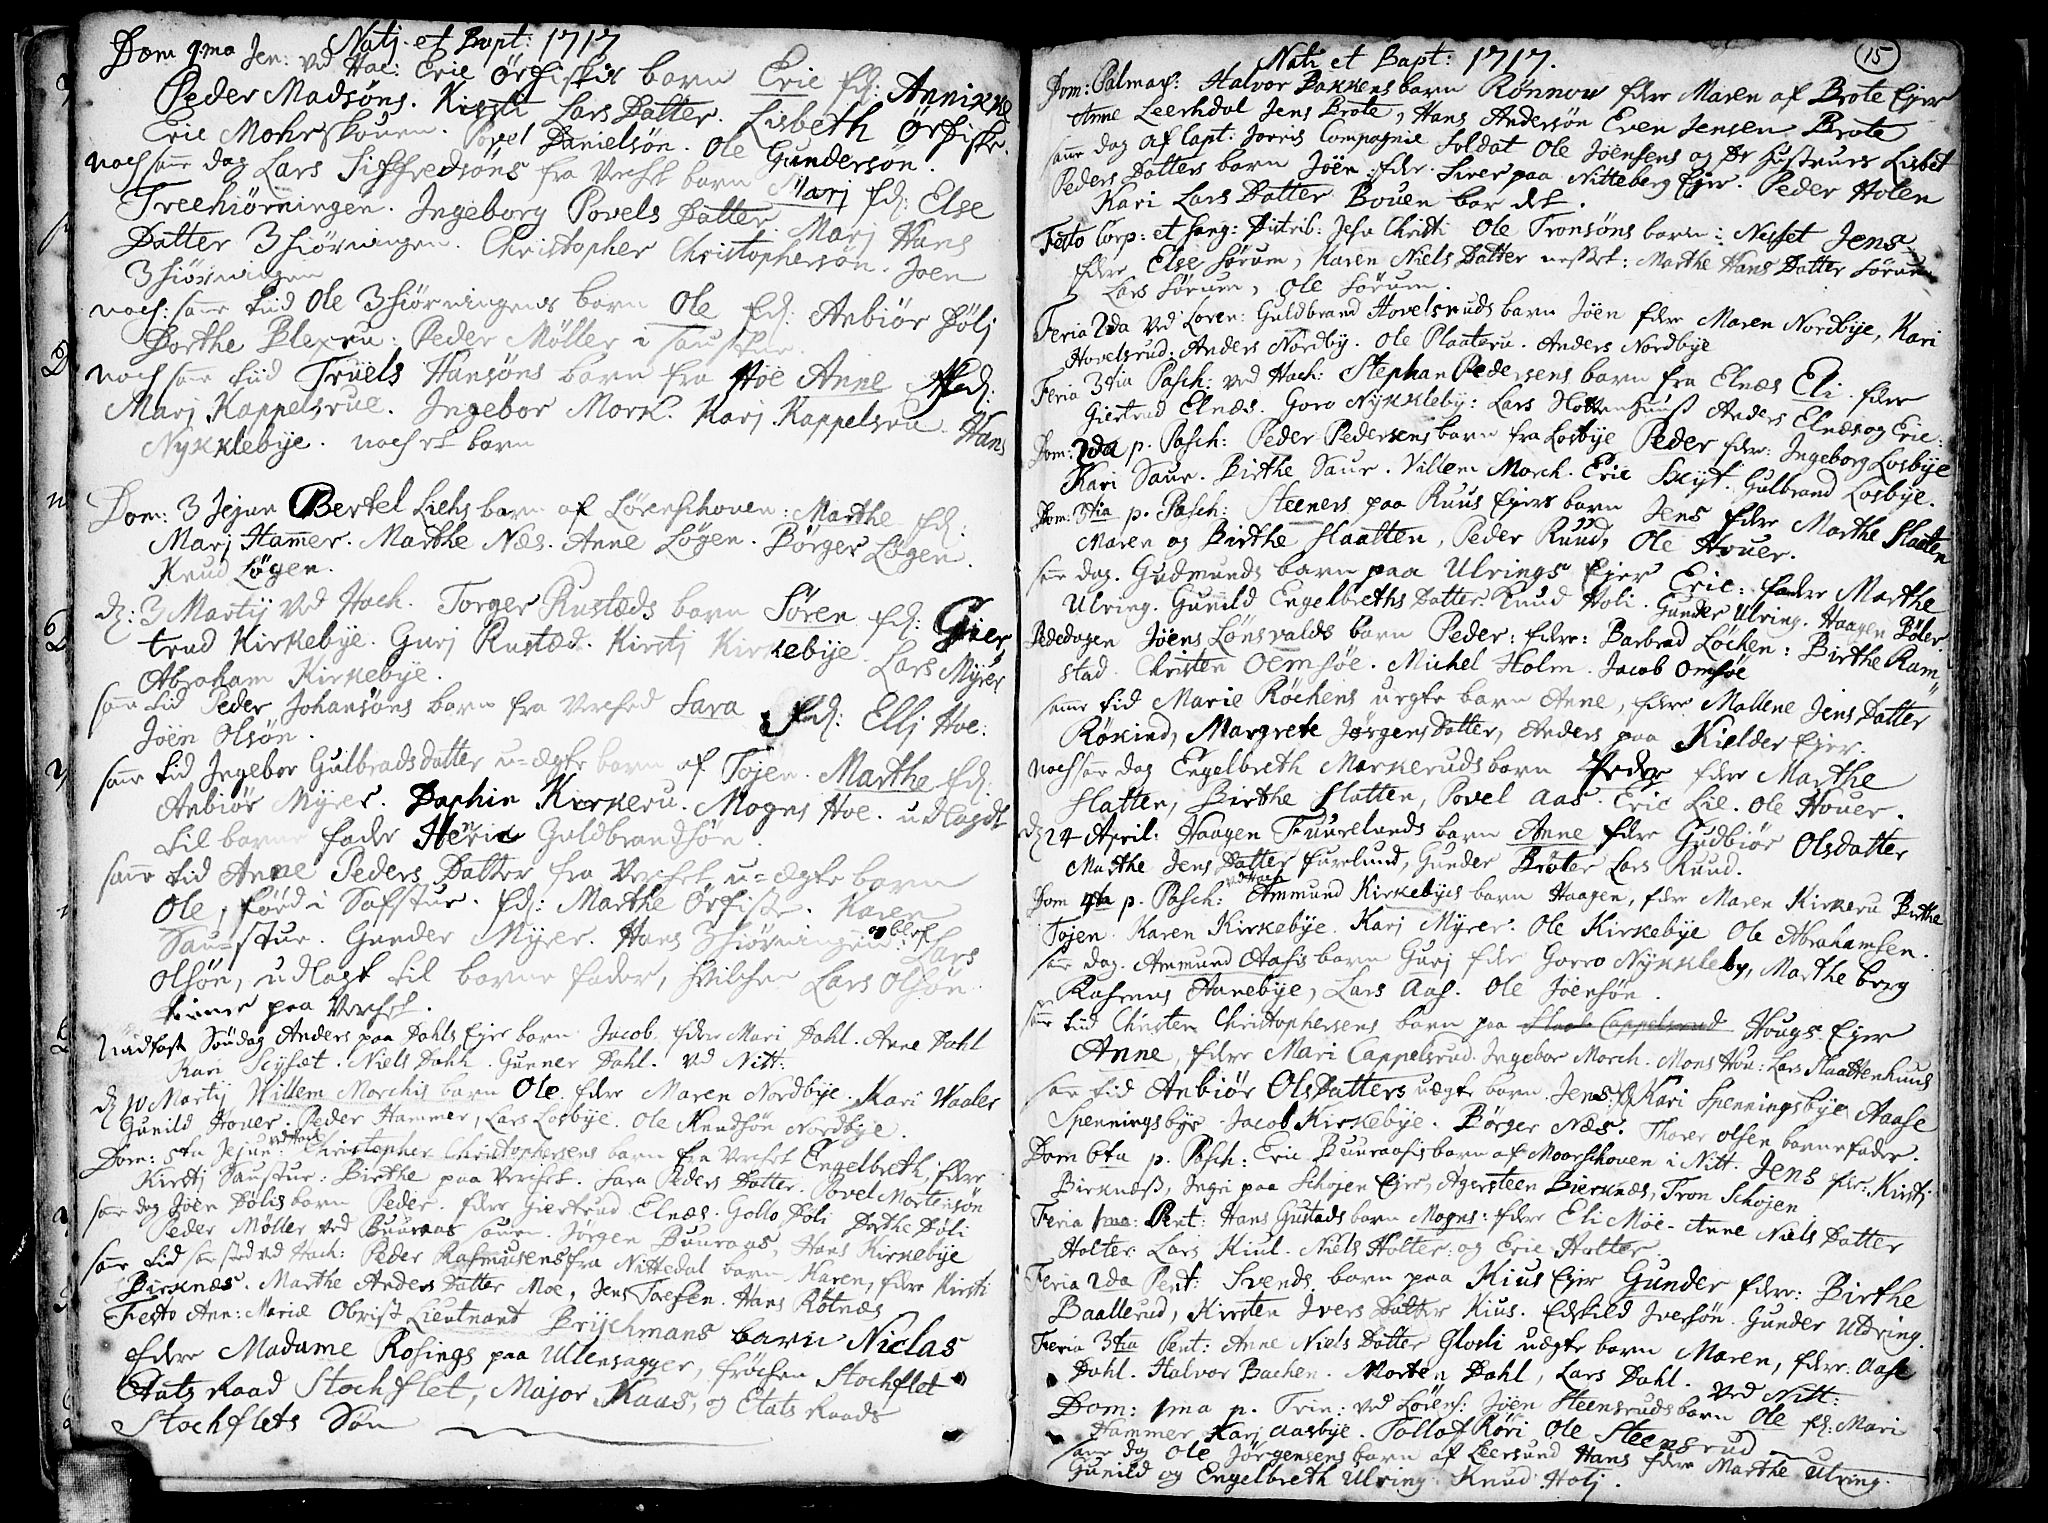 Natj. et Bapt: 1717
Dom 1ma Jeu: vd Hac: Eric Örfiskis barn Eric fd: Annikke
Peder Madsöns. Kirsti Lars Datter. Lisbeth Örfiske.
Eric Mohrskouen. Povel Danielsön. Ole Gundersön.
noch sam̄e dag Lars Siffredsöns fra Verchet barn Marj fd: Else
Treehiörningen. Ingeborg Povels Datter. Marj Hans
Datter 3hiörningen. Christopher Christophersön. Joen
3hiörningen
noch: sam̄e tiid Ole 3hiörningens barn Ole fd: Anbiör Dölj
Dorthe Blexru: Peder Möller i
noch sam̄e tiid Trüels Hansöns barn fra Hoe Anne fd:
Marj Kappelsrue. Ingebor Mork. Karj Kappelsru. Hans
Nykklebye. noch et barn
Dom: 3 Jejun Bertel Liehs barn af Lörenskouen: Marthe fd.
Marj Ham̄er. Marthe Næs. Anne Lögen. Börger Lögen.
Knud Lögen.
d: 3 Martij ved Hach. Torger Rustæds barn Sören fd: Gier
trud Kirkebye. Gurj Rustæd. Kirstj Kirkebye. Lars Myrer
Abraham Kirkebye.
sam̄e tid Peder Johansöns barn fra Verched Sara fd: Ellj Hoe:
Jöen Olsön.
sam̄e tid Ingebor Gulbrads datter u=ægte barn af Tojen. Marthe fd.
Anbiör Myrer. Dorthin Kirkeru. Mogns Hoe. udlagdt
til barne fader Henric Guldbrandsön.
sam̄e tid Anne Peders Datter fra Verchet u=ægte barn
Ole, föed i Safstur. fd: Marthe Örfiske. Karen
Saustur. Gunder Myrer. Hans 3hiörningen: og blef Lars
Olsön, udlagt til barne fader, hvilchen Lars Olsön
tiener paa Verchet.
Midfaste Söndag Anders paa Dahls Ejer barn Jacob. fdre Mari Dahl. Anne Dahl
Kari Scyset. Niels Dahl. Gunner Dahl. vd Nitt:
d 10 Martij Willem Morchis barn Ole. fdre Maren Nordbye. Kari Waaler
Gunild Houer. Peder Hammer, Lars Losbye. Ole Knudsön Nordbye.
Dom: 5ta Jejun: vd Hach Christopher Christophersens barn fra Verchet Engelbreth, fdre
Kirstj Saustur. Birthe paa Verchet. Sara Peders Datter. Povel Mortensön
sam̄e dag Jöen Dölis barn Peder. fdre Giertrud Elnæs. Gollo Döli Dorthe Döli
Peder Möller ved Buuraas sauen. Jörgen Buuraas, Hans Kirkebye
sam̄e tid sam̄e sted vd Hach: Peder Rasmusens fra Nittedal barn Karen, fdre Kirsti
Birknæs. Marthe Anders Datter Moe, Jens Toesen. Hans Rötnæs
Festo Ann: Mariæ Obrist Lieutnand Brijchmans barn Niclas
fdre Madame Rosings paa Ullensagger, fröchen Stochflet
Etats Raad Stochflet, Major Kaas, og Etats Raads
Stochflets Sön
15
Nati et Bapt: 1717.
Dom: Palmar: Halvor Bakkens barn Rönnou fdre Maren af Brote Ejer
Anne Leerhdal Jens Brote, Hans Andersön Even Jensen Brote
sam̄e dag af Capt: Jorris Compagnie Soldat Ole Jöensens og Dr hustrues Lisbet
Peders Datters barn Jöen: fdre. Sirer paa Nitteberg Ejer. Peder Holen
Kari Lars Datter Bouen bar det.
Festo Corp: et Sang: Distrib: Jesu Christi Ole Tronsöns barn: Nesset Jens
fdre, Else Sörum, Karen Niels Datter nesset: Marthe Hans Datter Sörum
Lars Sörum, Ole Sörum.
Feria 2da vd Loren: Guldbrand Hovelsruds barn Jöen fdre Maren Nordbye, Kari
Hovelsrud: Anders Nordby. Ole Plaateru. Anders Nordbye
Feria 3tia Pasch: ved Hach: Stephan Pedersens barn fra Elnæs Eli. fdre
Giertrud Elnæs. Goro Nykkleby: Lars Anders Elnæs og Eric:
Dom: 2da p. Pasch: Peder Pedersens barn fra Losbye Peder fdre: Ingeborg Losbye
Kari Saur. Birthe Saur. Villem Morch. Eric Skyt. Gulbrand Losbye.
Dom: 3tia p. Pasch: Steeners paa Ruus Ejers barn Jens fdre Marthe Slaatten
Maren og Birthe Slaatten, Peder Ruud, Ole Houer.
sam̄e dag. Gudmunds barn paa Ulrings Ejer Eric: fadre Marthe
Ulring. Gunild Engelbreths Datter. Knud Holi. Gunder Ulring. Haagen Böler
Bededagen Jöens Lönsvalds barn Peder: fdre: Barbrad Löchen: Birthe Ram"
stad. Christen Oemsöe. Michel Holm. Jacob Omsöe
samme tid Marie Röchens uegte barn Anne, fdre Mallene Jens Datter
Rökind, Margrete Jörgens Datter, Anders paa Kielder Ejer.
noch sam̄e dag Engelbreth Markeruds barn Peder fdre Marthe
Slatten, Birthe Slatten, Povel Aas. Eric Lie. Ole Houer.
d 24 April: Haagen Fuurelunds barn Anne fdre Gudbiör Olsdatter
Marthe Jens Datter Furelund, Gunder Bröter Lars Ruud.
Dom 4ta p. Pasch: vd Hach Ammund Kirkebyes barn Haagen, fdre Maren Kirkeru Birthe
Tojen. Karen Kirkebye. Karj Myrer. Ole Kirkebye Ole Abrahamsen.
sam̄e dag. Ammund Aasis barn Gurj fdre Gorro Nykkleby, Marthe berg
Rasmus Hanebye, Lars Aas. Ole Jöensön.
sam̄e tiid Christen Christophersens barn paa Cappelsrud Hougs Ejer
Anne, fdre Mari Cappelsrud. Ingebor Morch. Mons Hou: Lars Slaattenhuus
sam̄e tid Anbiör Olsdatters uægte barn. Jens: fd Kari Spenningsbye, Aaase
Spenningsbye. Jacob Kirkebye. Börger Næs. Thorer Olsen barnefader.
Dom 6ta p. Pasch: Eric Buuraasis barn af Moorschouen i Nitt. Jens fdr: Kirstj
Birknæs, Ingri paa Schojen Ejer, Agersteen Bierknæs, Tron Schojen
Feria 1ma: Pent: Hans Gustads barn Mogns: fdre Eli Möe. Anne Niels Datter
Holter. Lars Kiul. Niels Holter: og Eric Holter.
Feria 2da Pent: Svends barn paa Kius Ejer Gunder fdre: Birthe
Baallerud, Kirsten Ivers Datter Kius. Eskild Iversön. Gunder Uldring.
Feria 3tia Pent: Anne Niels Datter Glosli uægte barn Maren, fdre. Aase
Dahl. Halvor Bachen. Morten Dahl, Lars Dahl. ved Nitt:
Dom: 1ma p. Trin: vd Lörens: Jöen Steensruds barn Ole fd: Mari
Hammer Karj Aasbye. Tollof Röri Ole Steensrud
sam̄e dag Ole Jörgensens barn af Leersund Hans fdre Marthe Ulring.
Gunild og Engelbreth Ulring. Knud Holj.